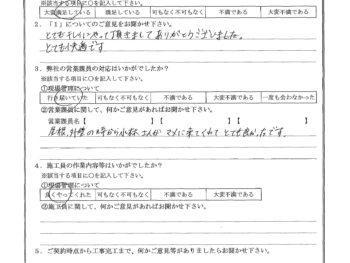 ※該当する項目に○を記入して下さい。
大変満足している 満足している 可も不可も無し 不満である 大変不満である
2.「1」についてのご意見をお聞かせ下さい。
とてもキレイにやって頂きまして ありがとうございました。
とても快適です
3．弊社の営業課員の対応はいかがでしたか？
※該当する項目に○を記入して下さい。
①現場管理について
行き届いていた 可もなく不可もなく 不満である 大変不満である 一度も会わなかった
②営業課員に関して、何かご意見があればお聞かせ下さい。
営業課員名【 】【 】【 】
屋根、外壁の時から小林さんが マメに来てくれて とても良かったです。
4．施工員の作業内容等はいかがでしたか？
※該当する項目に○を記入して下さい。
①現場管理について
良くやってくれた 可もなく不可もなく 不満である 大変不満である
②施工員に関して、何かご意見があればお聞かせ下さい。
5．ご契約時点から工事完工まで、何かご意見等がありましたらお聞かせ下さい。